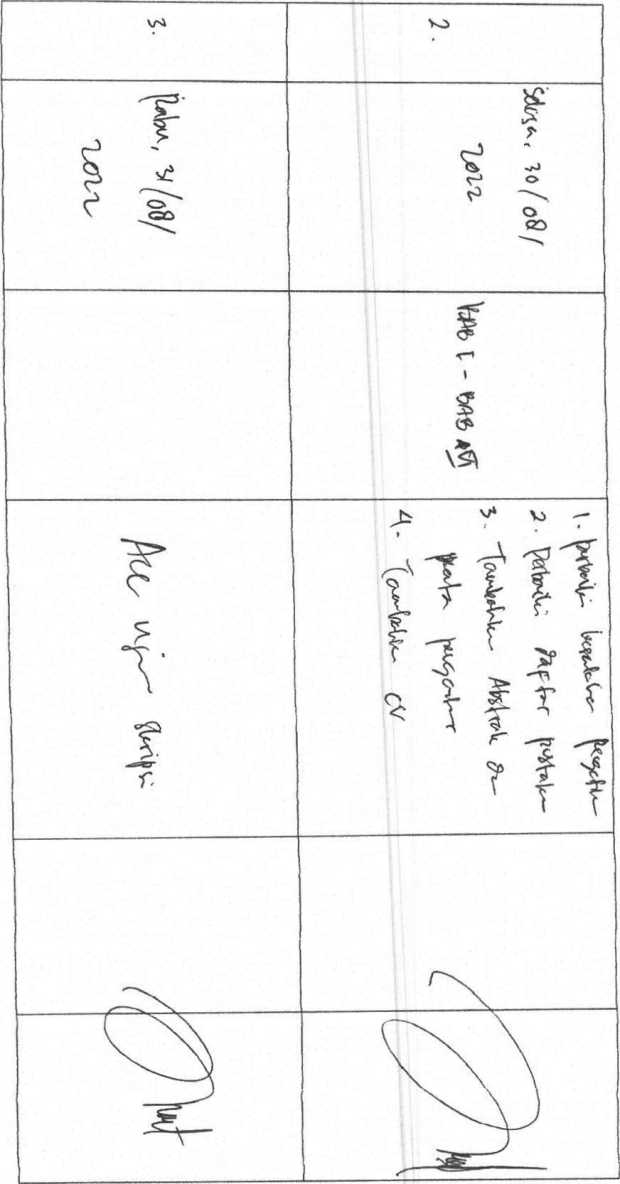 2.
Selasa, 30/08/
2022
BAB I - BAB VI
1. perbaiki kesalahan
2. Perbaiki daftar pustaka
3. Tambahkan Abstrak dan
kata pengantar
4. Tambahkan CV
3.
Rabu, 31/08/
2022
Acc ujian skripsi